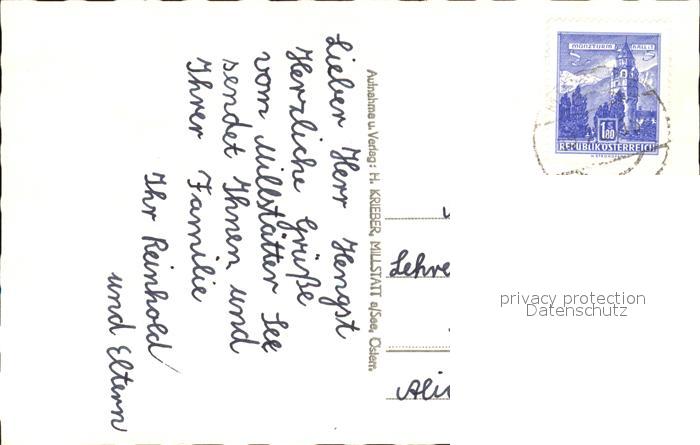 Lieber Herr Hengst
Herzliche Grüße
vom Millstätter See
sendet Ihnen und
Ihrer Familie
Ihr Reinhold
und Eltern
Aufnahme u. Verlag: H. KRIEBER, MILLSTATT a/See, Österr.
MÜNZTURM HALL i. T.
S 1.80
REPUBLIK ÖSTERREICH
Lehre
privacy protection
Datenschutz